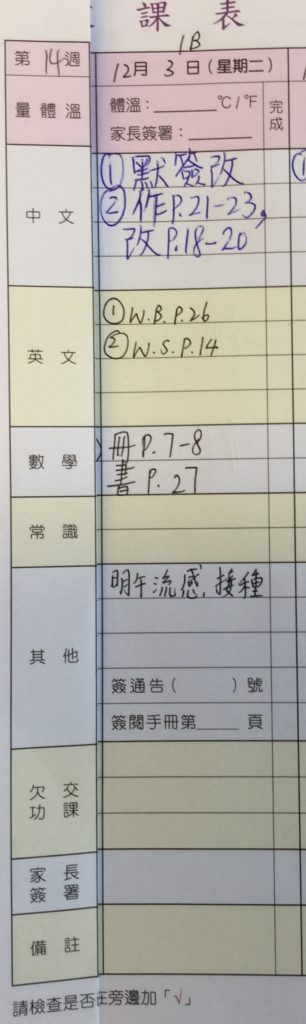 課表
1B
第14週 12月3日(星期二)
量體溫 體溫：______℃/℉ 完成
家長簽署：______
中文 ①默簽改
②作P.21-23,
改P.18-20
英文 ①W.B.P.26
②W.S.P.14
數學 冊P.7-8
書P.27
常識
其他 明午流感,接種
簽通告( )號
簽閱手冊第____頁
欠交
功課
家長
簽署
備註
請檢查是否在旁邊加「√」